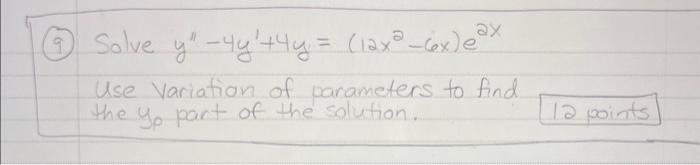 9 Solve y" -4y'+4y = (12x² - 6x)e^2x
Use Variation of parameters to find
the yp part of the solution. 12 points